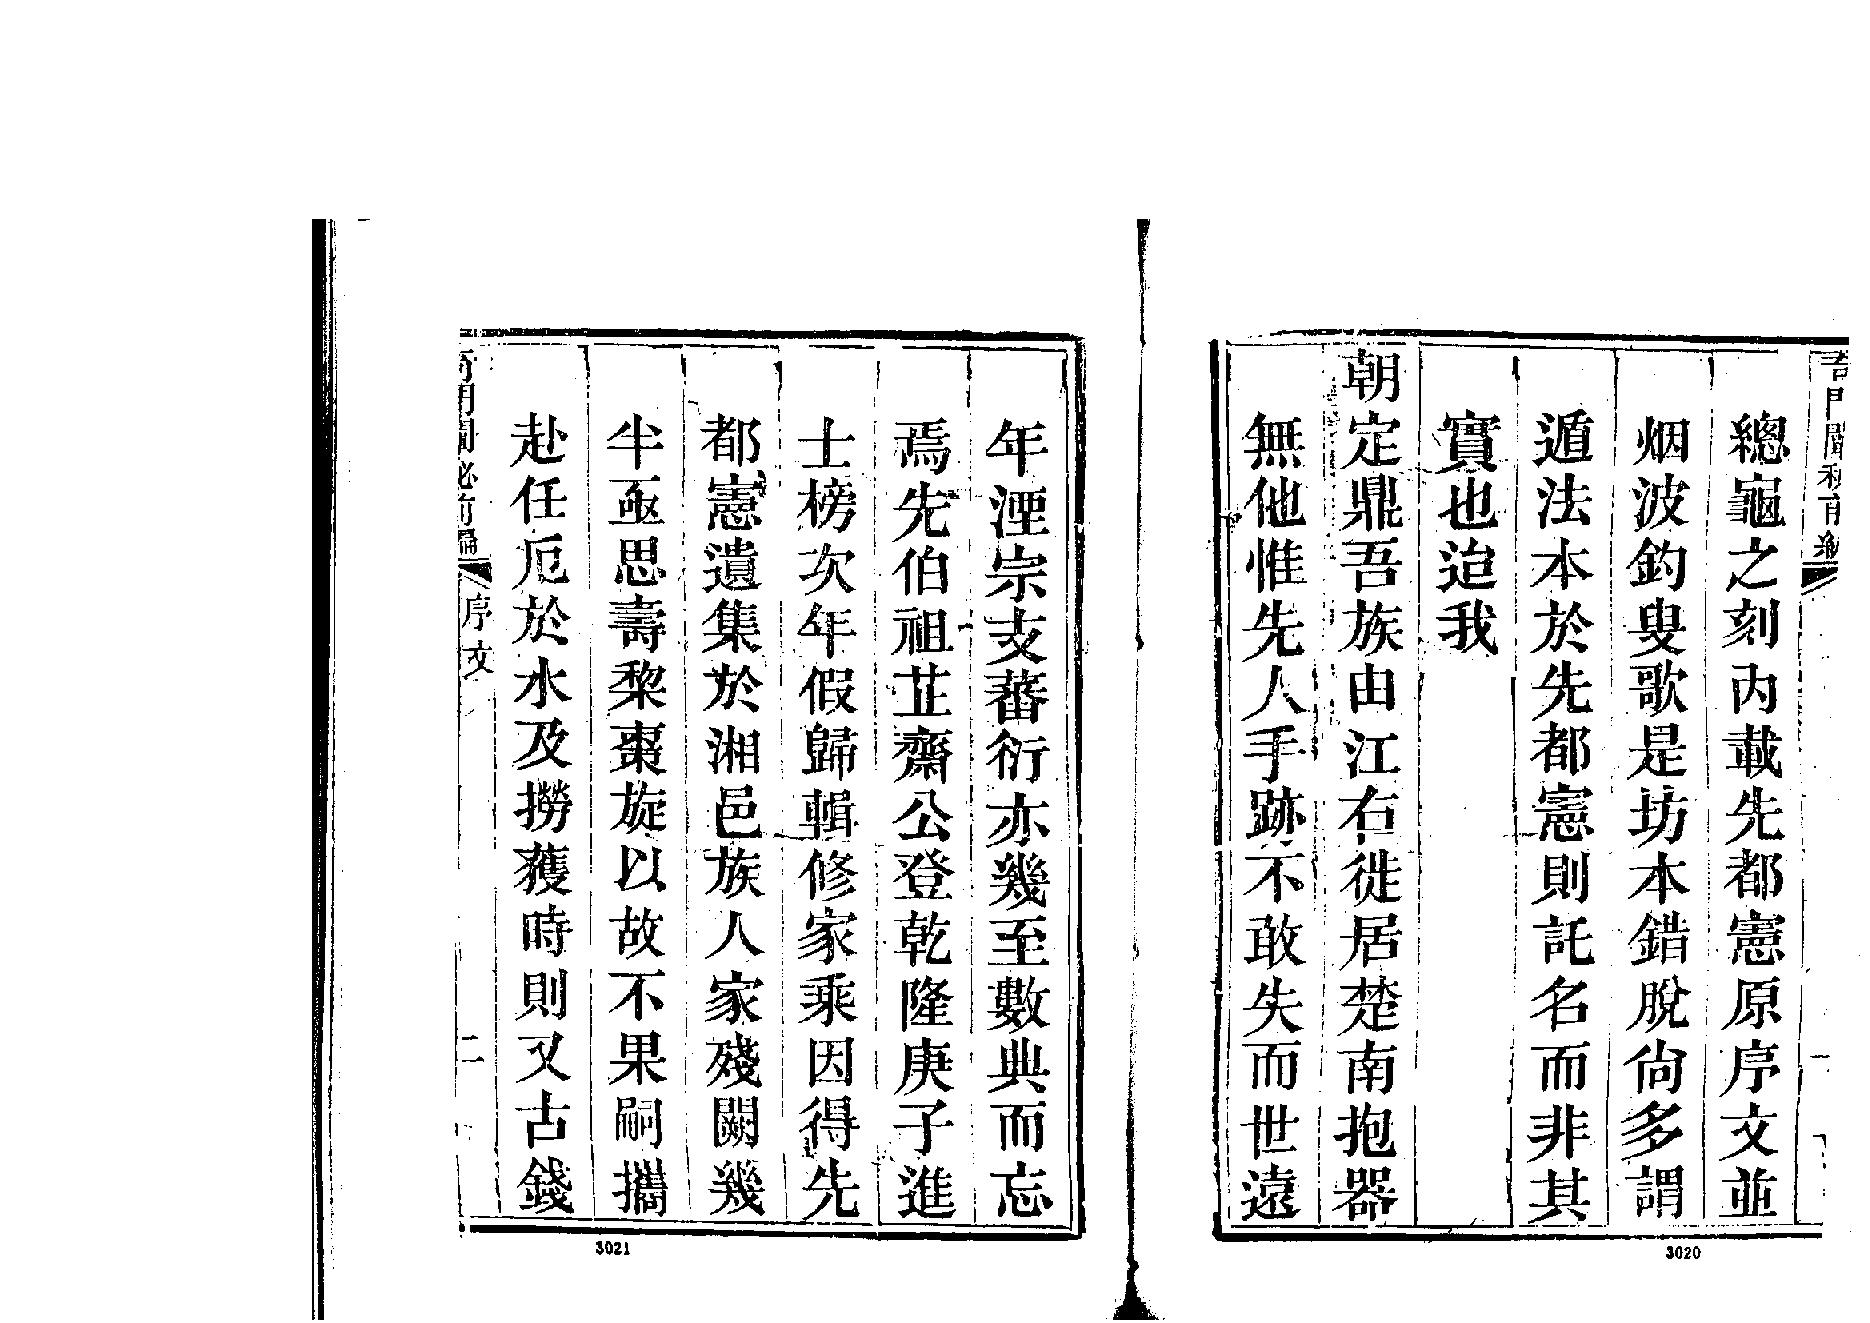 總龜之刻內載先都憲原序文並
烟波釣叟歌是坊本錯脫尙多謂
遁法本於先都憲則託名而非其
實也迨我
朝定鼎吾族由江右徙居楚南抱器
無他惟先人手跡不敢失而世遠
3020
年湮宗支蕃衍亦幾至數典而忘
焉先伯祖芷齋公登乾隆庚子進
士榜次年假歸輯修家乘因得先
都憲遺集於湘邑族人家殘闕幾
半亟思壽黎棗旋以故不果嗣攜
赴任厄於水及撈獲時則又古錢
序文
二
3021